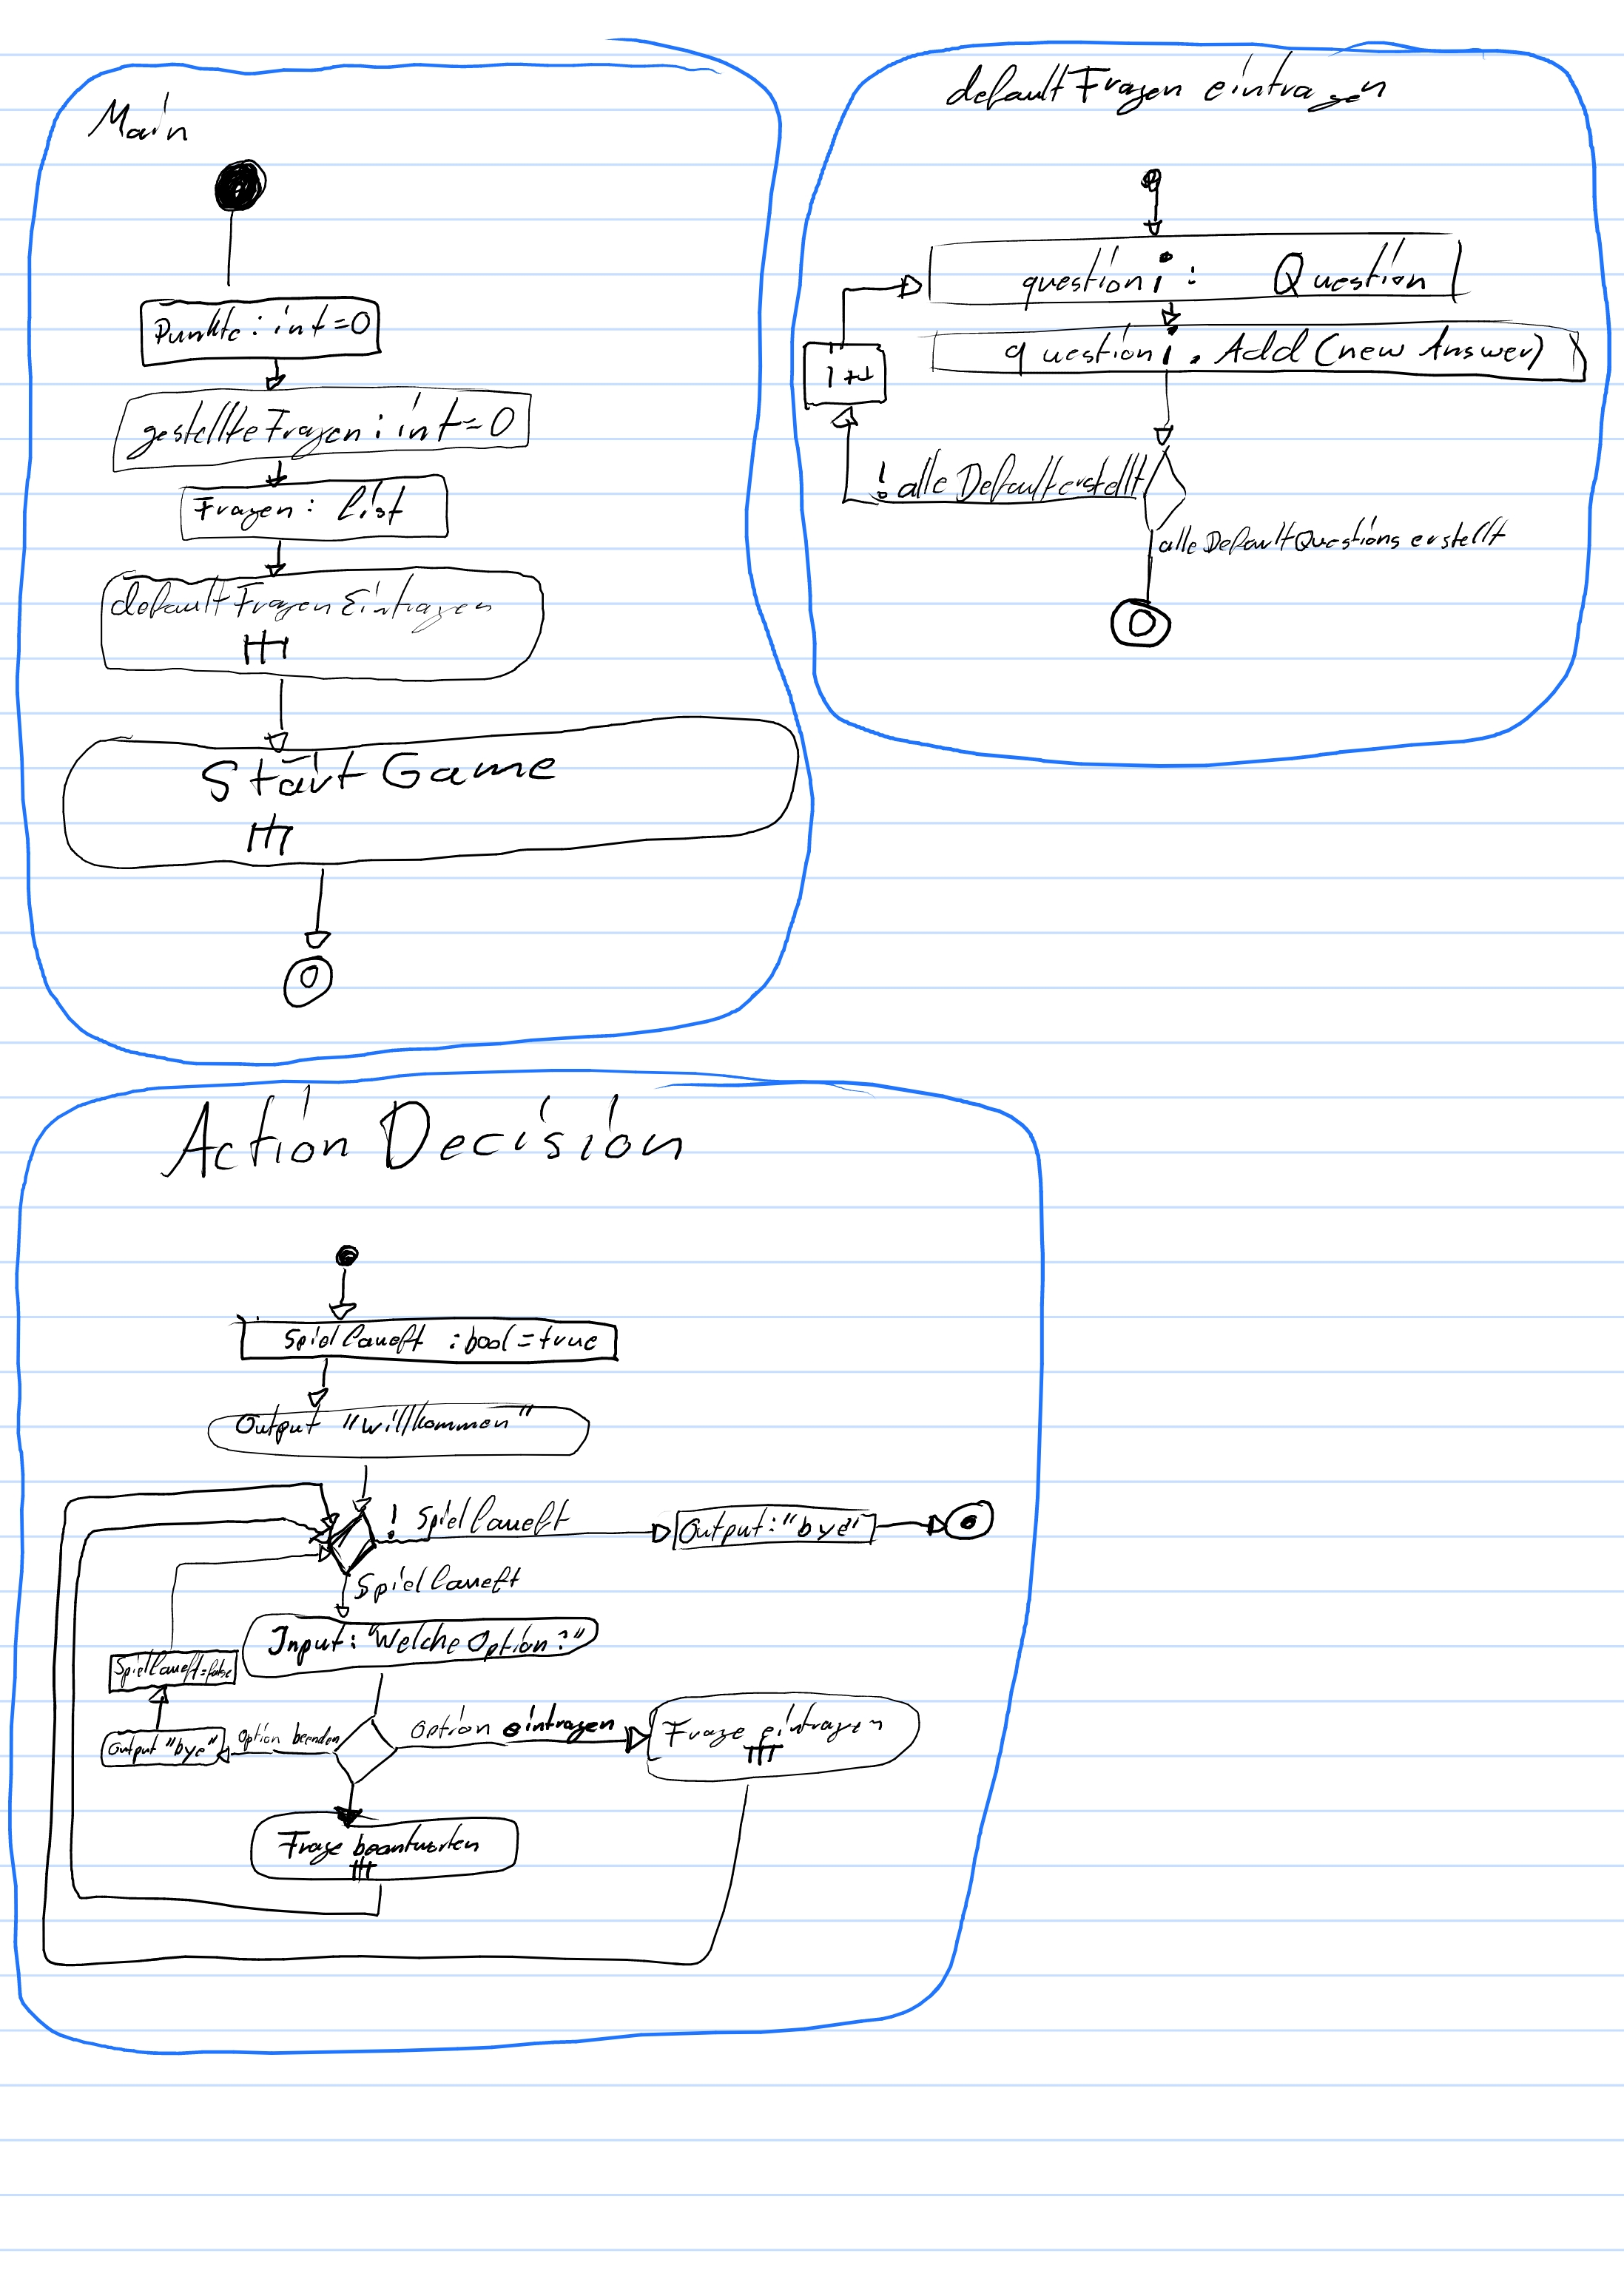 Main
Punkte : int = 0
gestellteFragen : int = 0
Fragen : list
defaultFragenEintragen
Start Game
defaultFragen eintragen
question i : Question
question i . Add (new Answer)
i++
! alle Default erstellt
alle DefaultQuestions erstellt
Action Decision
Spiel laueft : bool = true
Output "willkommen"
! Spiel laueft
Output: "bye"
Spiel laueft
Input: "Welche Option?"
Spiel laueft = false
Output "bye"
Option beenden
Option eintragen
Frage eintragen
Frage beantworten